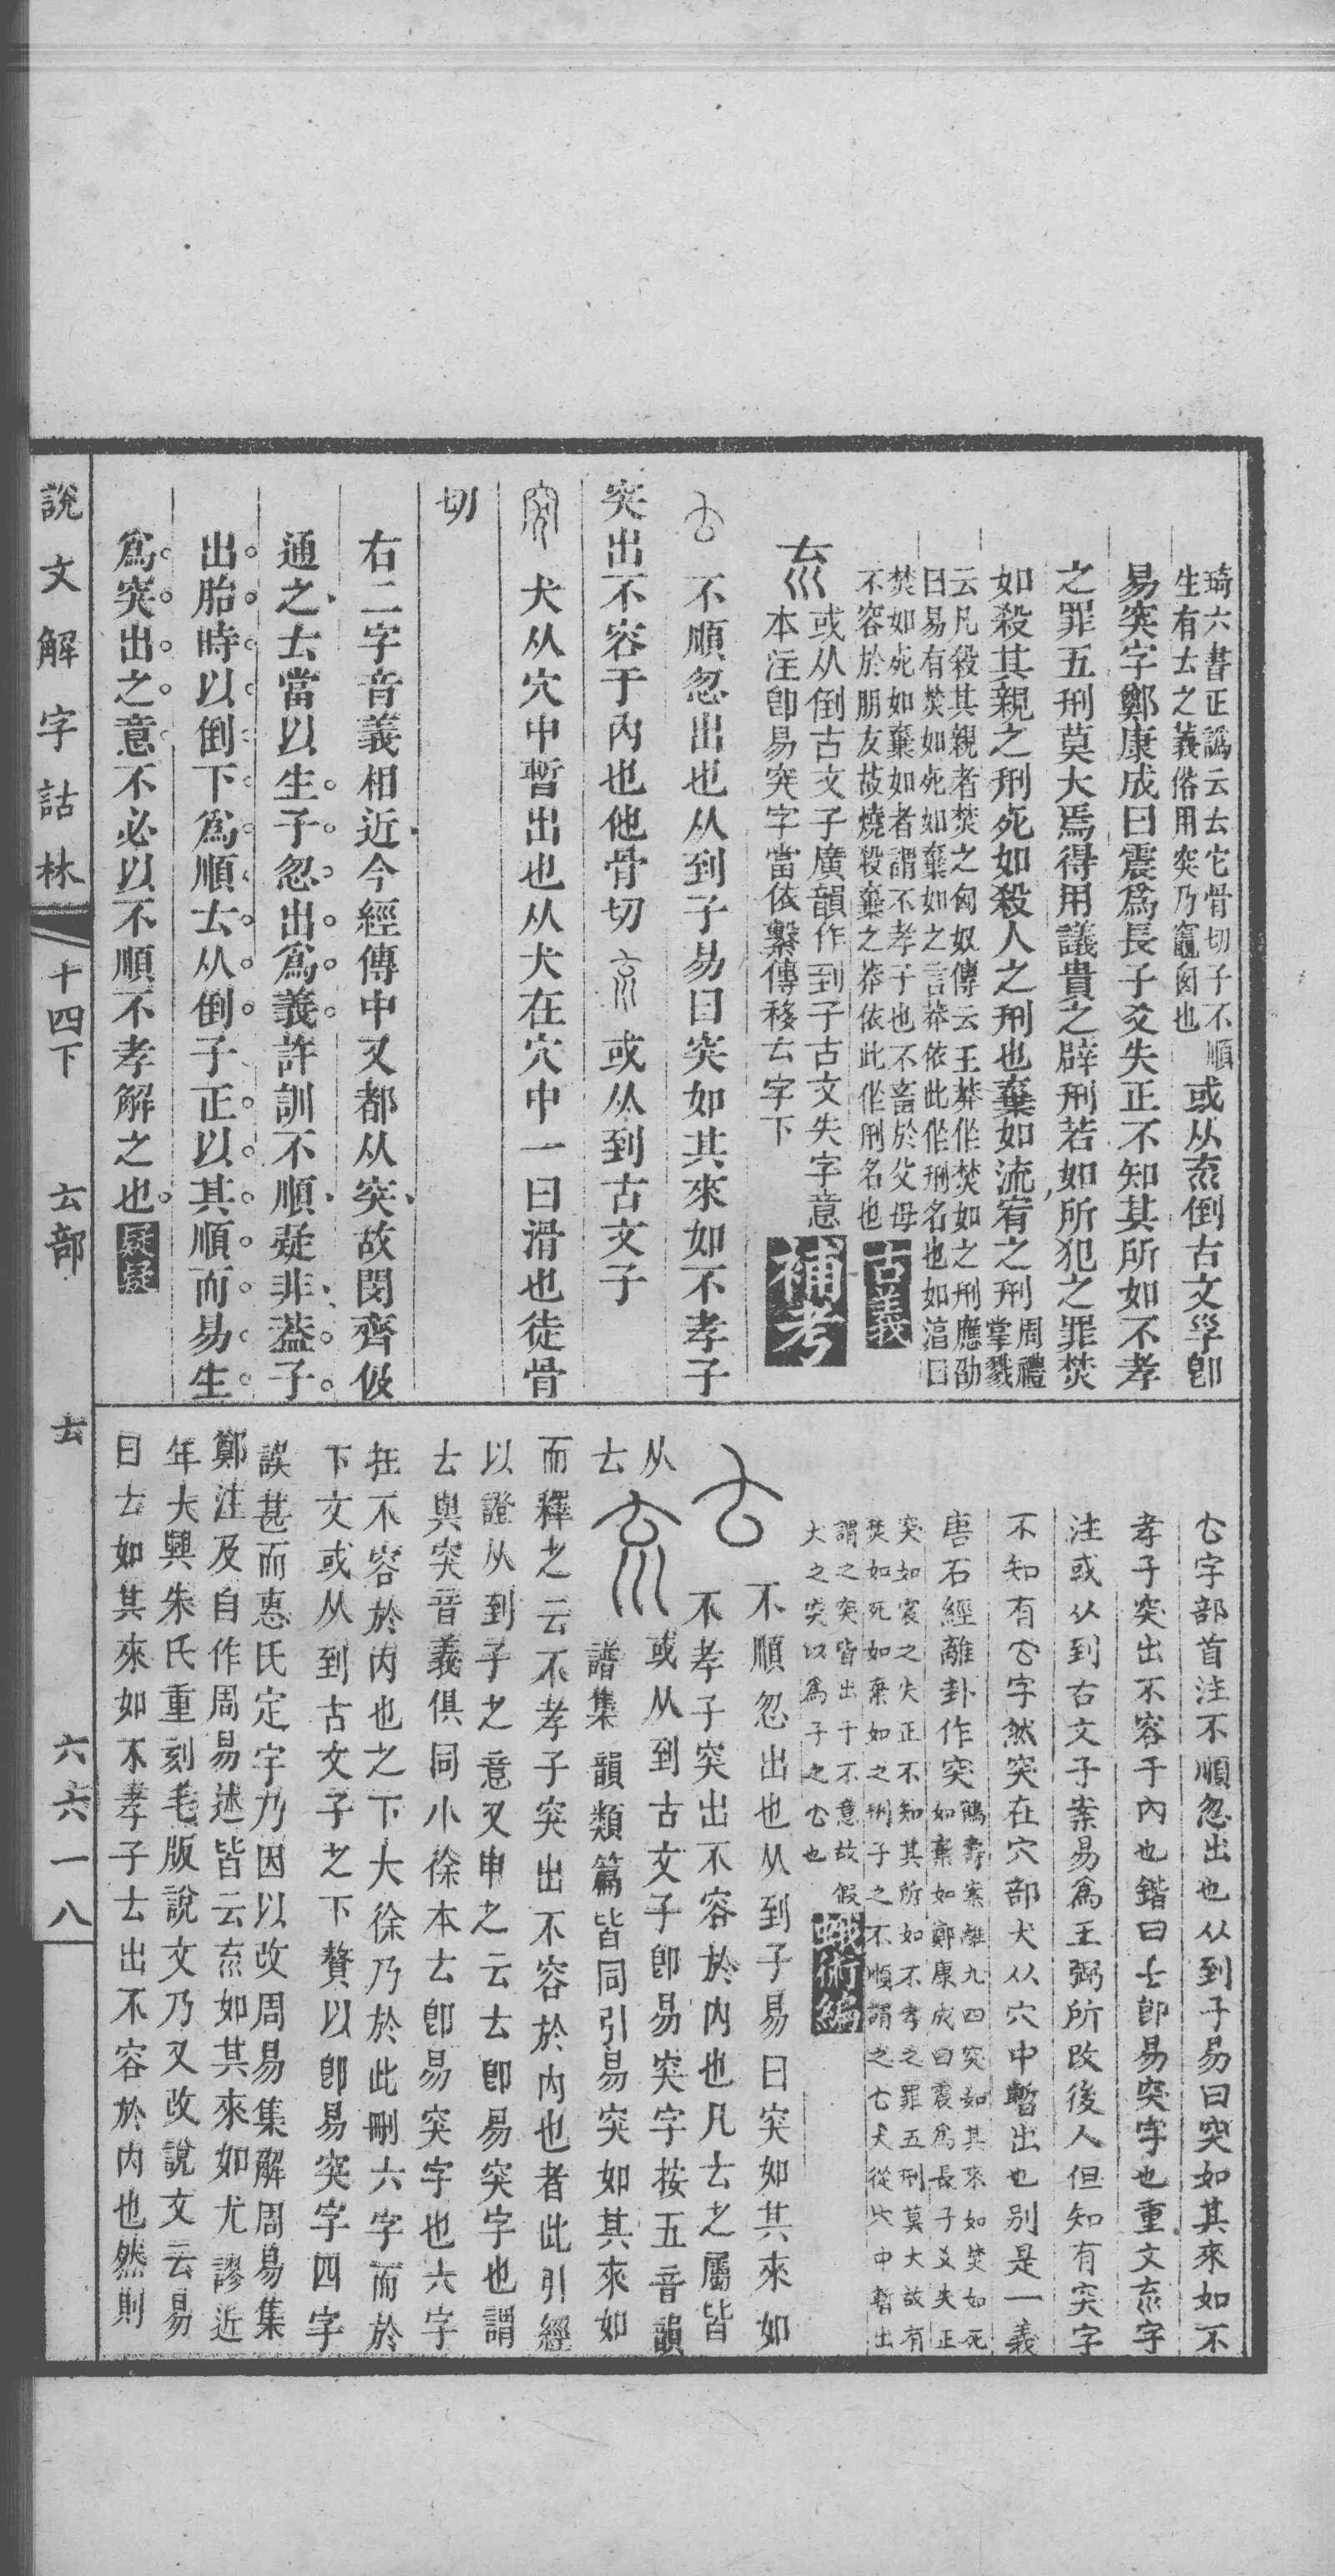 琦六書正譌云𠫓它骨切子不順
生有𠫓之義俗用突乃竈囪也
或从𠫬倒古文㜽卽
易突字鄭康成曰震爲長子爻失正不知其所如不孝
之罪五刑莫大焉得用議貴之辟刑若如所犯之罪焚
如殺其親之刑死如殺人之刑也棄如流宥之刑
周禮
掌戮
云凡殺其親者焚之匈奴傳云王莽作焚如之刑應劭
曰易有焚如死如棄如之言莽依此作刑名也如淳曰
焚如死如棄如者謂不孝子也不畜於父母
不容於朋友故燒殺棄之莽依此作刑名也
古義
𠫬
或从倒古文子廣韻作到子古文失字意
本注卽易突字當依繫傳移𠫓字下
補考
𠫓 不順忽出也从到子易曰突如其來如不孝子
突出不容于內也他骨切 𠫬 或从到古文子
突 犬从穴中暫出也从犬在穴中一曰滑也徒骨
切
右二字音義相近今經傳中又都从突故閔齊伋
通之𠫓當以生子忽出爲義許訓不順疑非葢子
出胎時以倒下爲順𠫓从倒子正以其順而易生
爲突出之意不必以不順不孝解之也
疑疑
𠫓字部首注不順忽出也从到子易曰突如其來如不
孝子突出不容于內也鍇曰𠫓卽易突字也重文𠫬字
注或从到古文子案易爲王弼所改後人但知有突字
不知有𠫓字然突在穴部犬从穴中暫出也別是一義
唐石經離卦作突
鶴壽案離九四突如其來如焚如死
如棄如鄭康成曰震爲長子爻失正
突如震之失正不知其所如不孝之罪五刑莫大故有
焚如死如棄如之刑子之不順謂之𠫓犬從穴中暫出
謂之突皆出于不意故假
犬之突以爲子之𠫓也
蛾術編
𠫓
不順忽出也从到子易曰突如其來如
不孝子突出不容於內也凡𠫓之屬皆
从
𠫓
𠫬
或从到古文子卽易突字按五音韻
譜集韻類篇皆同引易突如其來如
而釋之云不孝子突出不容於內也者此引經
以證从到子之意又申之云𠫓卽易突字也謂
𠫓與突音義俱同小徐本𠫓卽易突字也六字
在不容於內也之下大徐乃於此刪六字而於
下文或从到古文子之下贅以卽易突字四字
誤甚而惠氏定宇乃因以改周易集解周易集
鄭注及自作周易述皆云𠫬如其來如尤謬近
年大興朱氏重刻毛版說文乃又改說文云易
曰𠫓如其來如不孝子𠫓出不容於內也然則
說文解字詁林
十四下
𠫓部
𠫓
六六一八